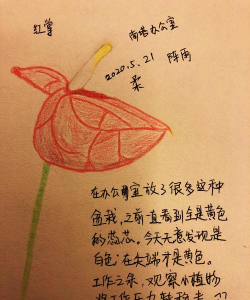 红掌
南塔办公室
2020.5.21 阵雨
柔
在办公室放了很多这种
盆栽,之前一直看到全是黄色
的蕊芯。今天无意发现是
白色;在尖端才是黄色。
工作之余,观察小植物